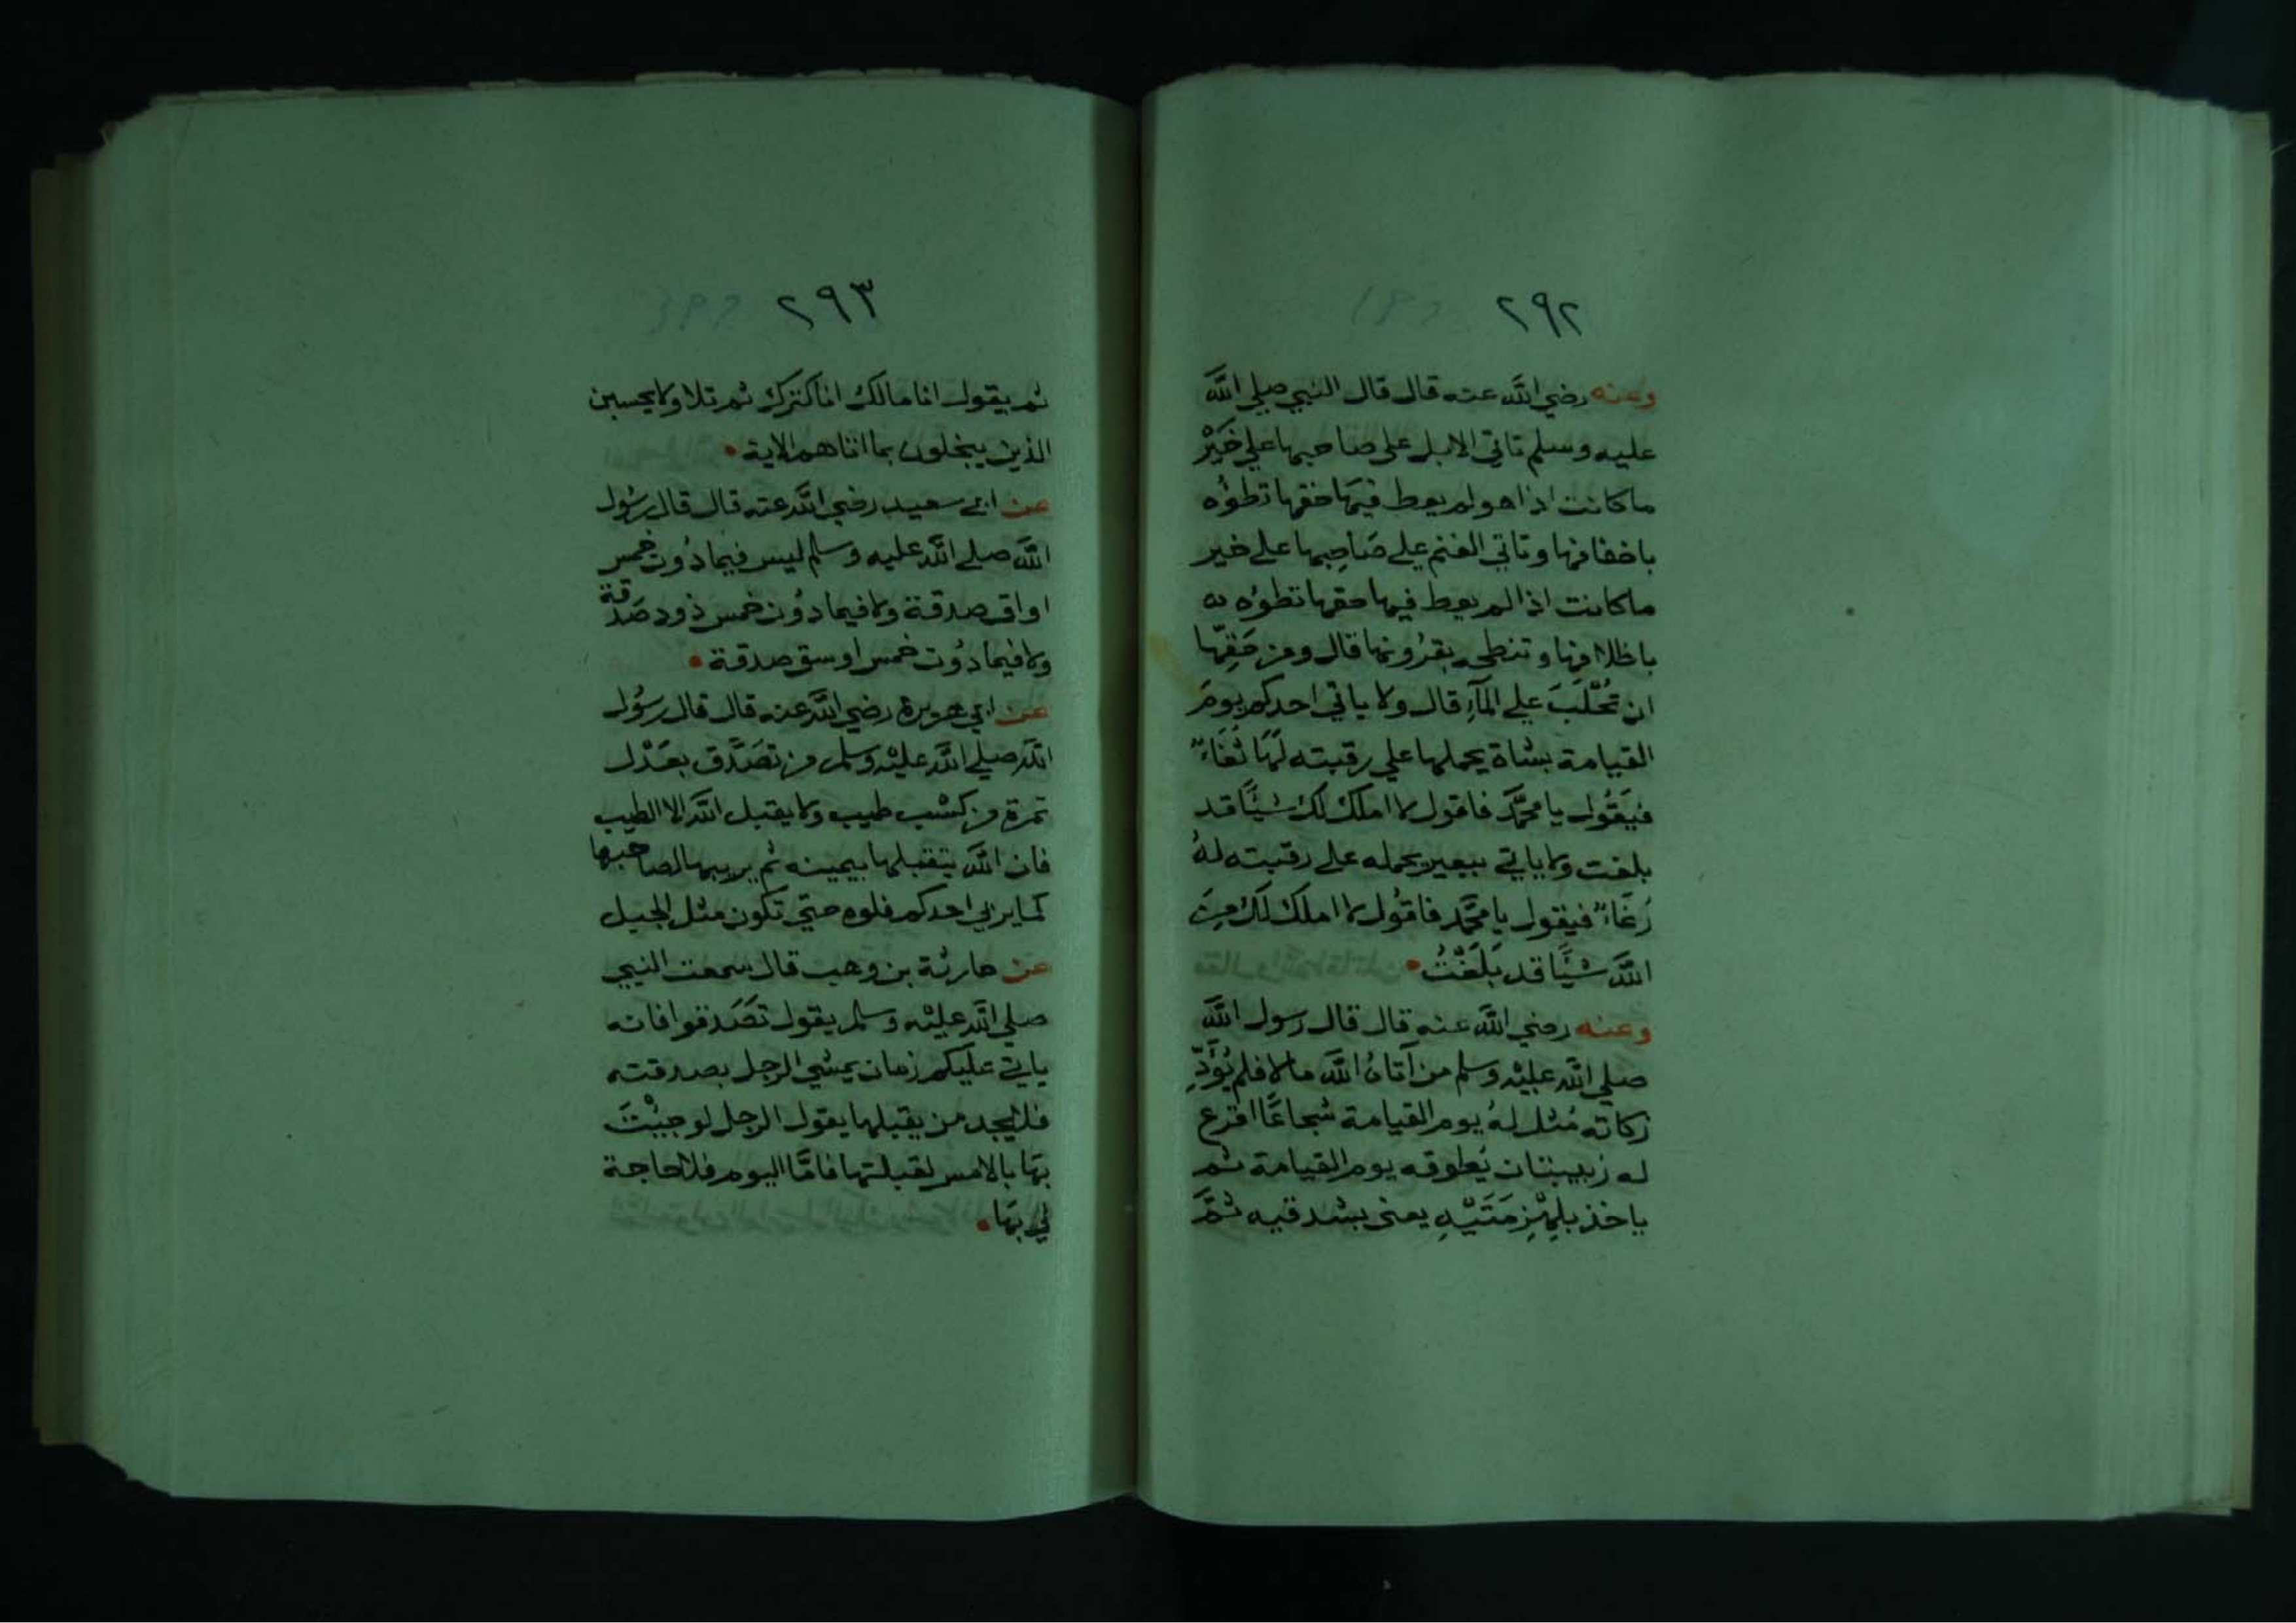 ٢٩٢
وعنه رضي الله عنه قال قال النبي صلي الله
عليه وسلم تاتي الابل علي صاحبها علي خَيْر
ما كانت اذا هو لم يعط فيهَا حقها تطؤه
باخفافها وتاتي الغنم علي صَاحِبها علي خير
ما كانت اذا لم يعط فيها حقها تطؤه
باظلافها وتنطحه بقرُونها قال ومن حَقِهّا
ان تُحْلَبَ علي المآءِ قال ولا ياتي احدكم يومَ
القيامة بشاة يحملها علي رقبته لَهَا ثُغَاءٌ
فيَقُول يا محمَّد فاقول لا املك لك شيًَا قد
بلغت ولا ياتي ببعير يحمله علي رقبته لهُ
رُغَاءٌ فيقول يا محمَّد فاقُول لا املك لَكَ مِنَ
اللَّه شيًَا قد بَلَغْتُ
وعنه رضي اللَّه عنه قال قال رسول اللَّه
صلي الله عليْه وسلم من آتاهُ اللَّه مالا فلم يُؤَدِّ
زكاته مُثل لهُ يوم القيامة شجاعًا اقرع
له زبيبتان يُطوقه يوم القيامة ثم
ياخذ بلِهْزِمَتَيْهِ يعني بشدقيه ثمَّ
٢٩٣
ثم يقول انا مالك انا كنزك ثم تلا ولا يحسبن
الذين يبخلون بما اتاهم الاية
عن ابي سعيد رضي الله عنه قال قال رسُول
اللَّه صلي الله عليه وسلم ليس فيما دُون خمس
اواق صدقة ولا فيما دوُن خمس ذود صَدقة
ولا فيما دوُن خمس اوسق صدقة
عن ابي هريرة رضي الله عنه قال قال رسُول
الله صلي الله عليْه وسلم من تصَدَّق بعَدْل
تمرة من كسْب طيب ولا يقبل الله الا الطيب
فان اللَّه يتقبلها بيمينه ثم يربيها لصاحبها
كما يربي احدكم فلوه حتي تكون مثل الجبل
عن حارثة بن وهب قال سمعت النبي
صلي الله عليْه وسلم يقول تصَدقوا فانه
ياتي عليكم زمان يمشي الرجل بصدقته
فلا يجد من يقبلها يقول الرجل لو جيْتَ
بهَا بالامس لقبلتها فامَّا اليوم فلا حاجة
لي بهَا